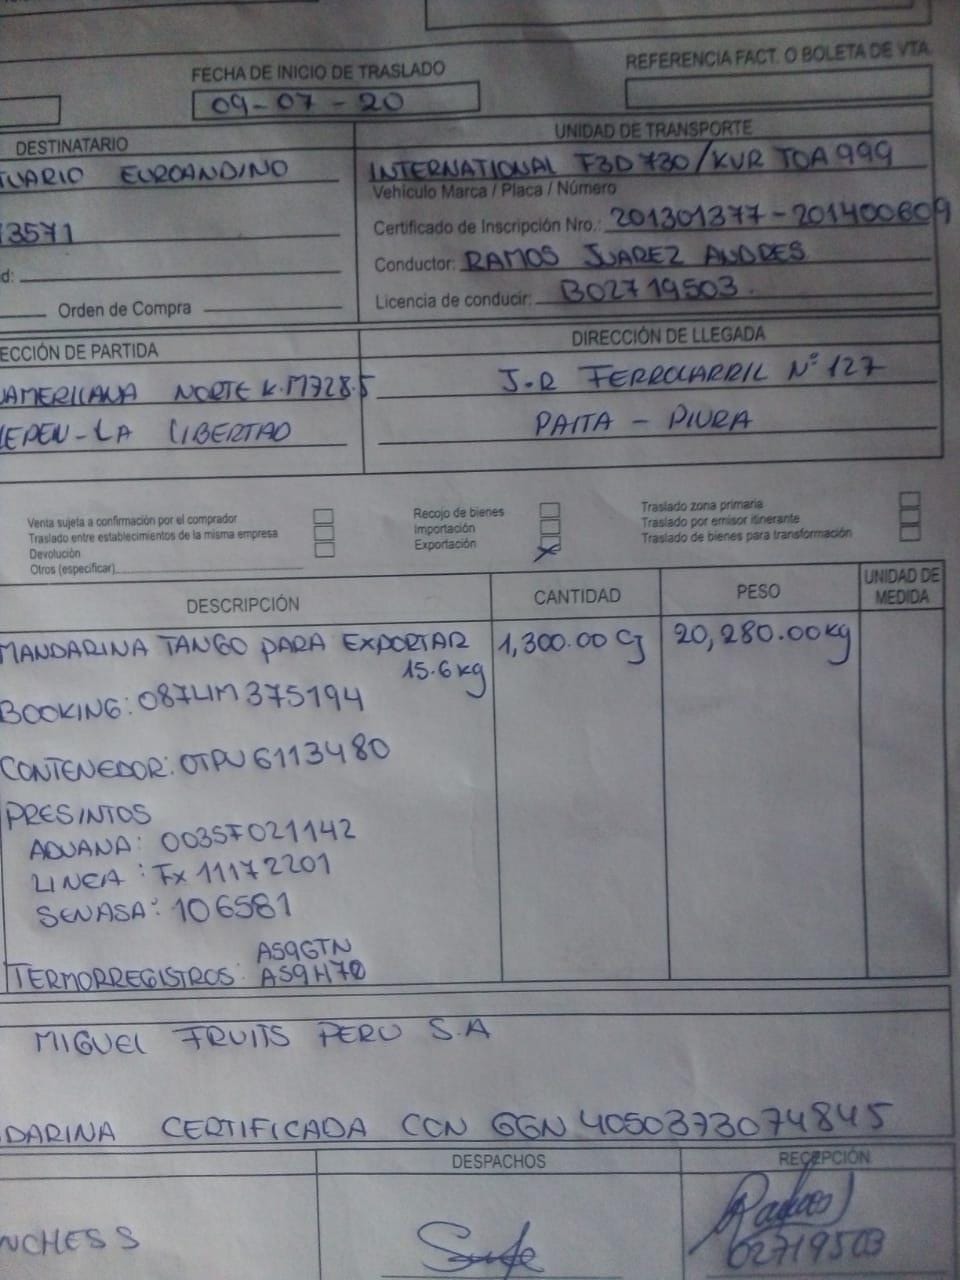 FECHA DE INICIO DE TRASLADO
REFERENCIA FACT. O BOLETA DE VTA.
09-07-20
DESTINATARIO
UNIDAD DE TRANSPORTE
TUARIO EUROANDINO
INTERNATIONAL F3D 730/KVR TOA 999
Vehículo Marca / Placa / Número
13571
Certificado de Inscripción Nro.: 201301377-201400609
Conductor: RAMOS JUAREZ ANDRES
Licencia de conducir: B02719503.
Orden de Compra
ECCIÓN DE PARTIDA
DIRECCIÓN DE LLEGADA
AMERICANA NORTE K.M728.5
J.R FERROCARRIL N° 127
EPEN-LA LIBERTAD
PAITA - PIURA
Venta sujeta a confirmación por el comprador
Traslado entre establecimientos de la misma empresa
Devolución
Otros (especificar)
Recojo de bienes
Importación
Exportación
Traslado zona primaria
Traslado por emisor itinerante
Traslado de bienes para transformación
DESCRIPCIÓN
CANTIDAD
PESO
UNIDAD DE MEDIDA
MANDARINA TANGO PARA EXPORTAR
15.6 kg
1,300.00 CJ
20,280.00kg
BOOKING: 087LIM375194
CONTENEDOR: OTPU 6113480
PRESINTOS
ADUANA: 0035F021142
LINEA: Fx 11172201
SENASA: 106581
TERMORREGISTROS: AS9GTN
AS9H70
MIGUEL FRUITS PERU S.A
DARINA CERTIFICADA CON GGN 4050373074845
DESPACHOS
RECEPCIÓN
NCHES S
02719503